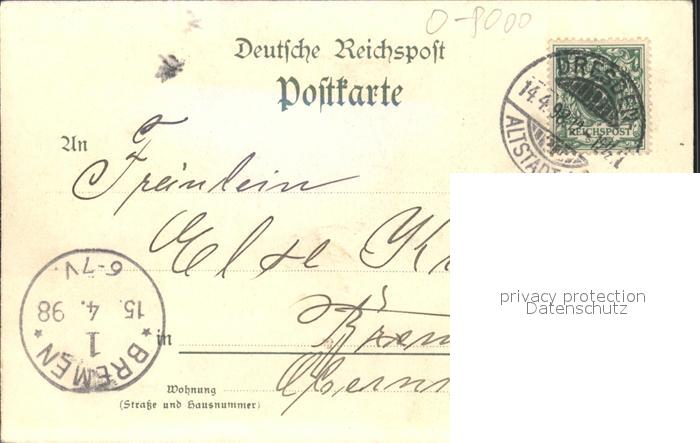 0-8000
Deutsche Reichspost
Postkarte
DRESDEN
14.4.98
ALTSTADT
REICHSPOST
An
Fräulein
Else
Brem
in
BREMEN
1
15. 4. 98
6-7V.
Wohnung
(Straße und Hausnummer)
privacy protection
Datenschutz